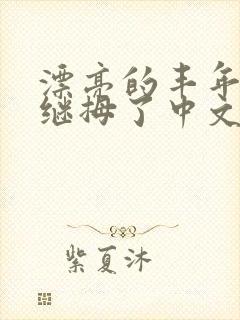 漂亮的丰年
继拇了中文
紫夏沐